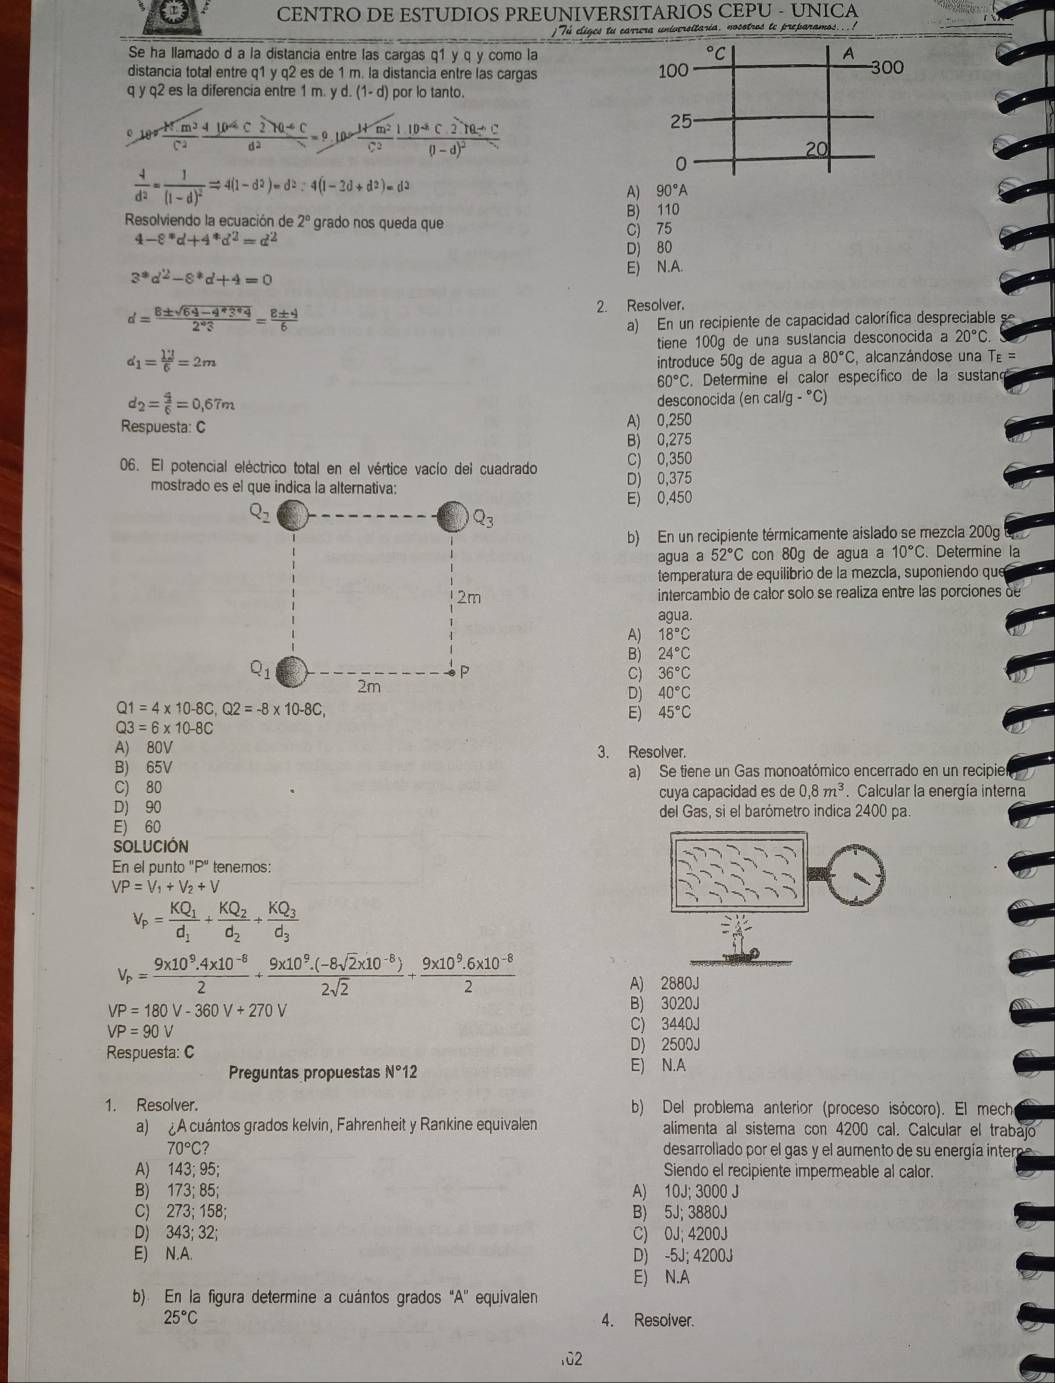 CENTRO DE ESTUDIOS PREUNIVERSITARIOS CEPU - UNICA
¡Tú eliges tu carrera universitaria, nosotros te preparamos...!
Se ha llamado d a la distancia entre las cargas q1 y q y como la
distancia total entre q1 y q2 es de 1 m. la distancia entre las cargas
q y q2 es la diferencia entre 1 m. y d. (1- d) por lo tanto.
9 10⁹ N.m² / C² 4 10⁻⁶ C 2 10⁻⁶ C / d² = 9 10⁹ N m² / C² 1 10⁻⁶ C 2 10⁻⁶ C / (1 - d)²
4/d² = 1/(1 - d)² ⇒ 4(1 - d²) = d² : 4(1 - 2d + d²) = d²
Resolviendo la ecuación de 2° grado nos queda que
4-8*d+4*d²=d²
3*d²-8*d+4=0
d = 8±√64-4*3*4 / 2*3 = 8±4 / 6
d₁ = 12/6 = 2m
d₂ = 4/6 = 0,67m
Respuesta: C
06. El potencial eléctrico total en el vértice vacío del cuadrado
mostrado es el que indica la alternativa:
Q₂
Q₃
2m
Q₁
P
2m
Q1 = 4 x 10-8C, Q2 = -8 x 10-8C,
Q3 = 6 x 10-8C
A) 80V
B) 65V
C) 80
D) 90
E) 60
SOLUCIÓN
En el punto "P" tenemos:
VP = V₁ + V₂ + V
Vₚ = KQ₁/d₁ + KQ₂/d₂ + KQ₃/d₃
Vₚ = 9x10⁹.4x10⁻⁸ / 2 + 9x10⁹.(-8√2x10⁻⁸) / 2√2 + 9x10⁹.6x10⁻⁸ / 2
VP = 180 V - 360 V + 270 V
VP = 90 V
Respuesta: C
Preguntas propuestas N°12
1. Resolver.
a) ¿A cuántos grados kelvin, Fahrenheit y Rankine equivalen
70°C?
A) 143; 95;
B) 173; 85;
C) 273; 158;
D) 343; 32;
E) N.A.
b) En la figura determine a cuántos grados "A" equivalen
25°C
°C
A
100
300
25
20
0
A) 90°A
B) 110
C) 75
D) 80
E) N.A.
2. Resolver.
a) En un recipiente de capacidad calorífica despreciable se
tiene 100g de una sustancia desconocida a 20°C.
introduce 50g de agua a 80°C, alcanzándose una Tᴇ =
60°C. Determine el calor específico de la sustanc
desconocida (en cal/g - °C)
A) 0,250
B) 0,275
C) 0,350
D) 0,375
E) 0,450
b) En un recipiente térmicamente aislado se mezcla 200g
agua a 52°C con 80g de agua a 10°C. Determine la
temperatura de equilibrio de la mezcla, suponiendo que
intercambio de calor solo se realiza entre las porciones de
agua.
A) 18°C
B) 24°C
C) 36°C
D) 40°C
E) 45°C
3. Resolver.
a) Se tiene un Gas monoatómico encerrado en un recipien
cuya capacidad es de 0,8 m³. Calcular la energía interna
del Gas, si el barómetro indica 2400 pa.
A) 2880J
B) 3020J
C) 3440J
D) 2500J
E) N.A
b) Del problema anterior (proceso isócoro). El mech
alimenta al sistema con 4200 cal. Calcular el trabajo
desarrollado por el gas y el aumento de su energía interna
Siendo el recipiente impermeable al calor.
A) 10J; 3000 J
B) 5J; 3880J
C) 0J; 4200J
D) -5J; 4200J
E) N.A
4. Resolver.